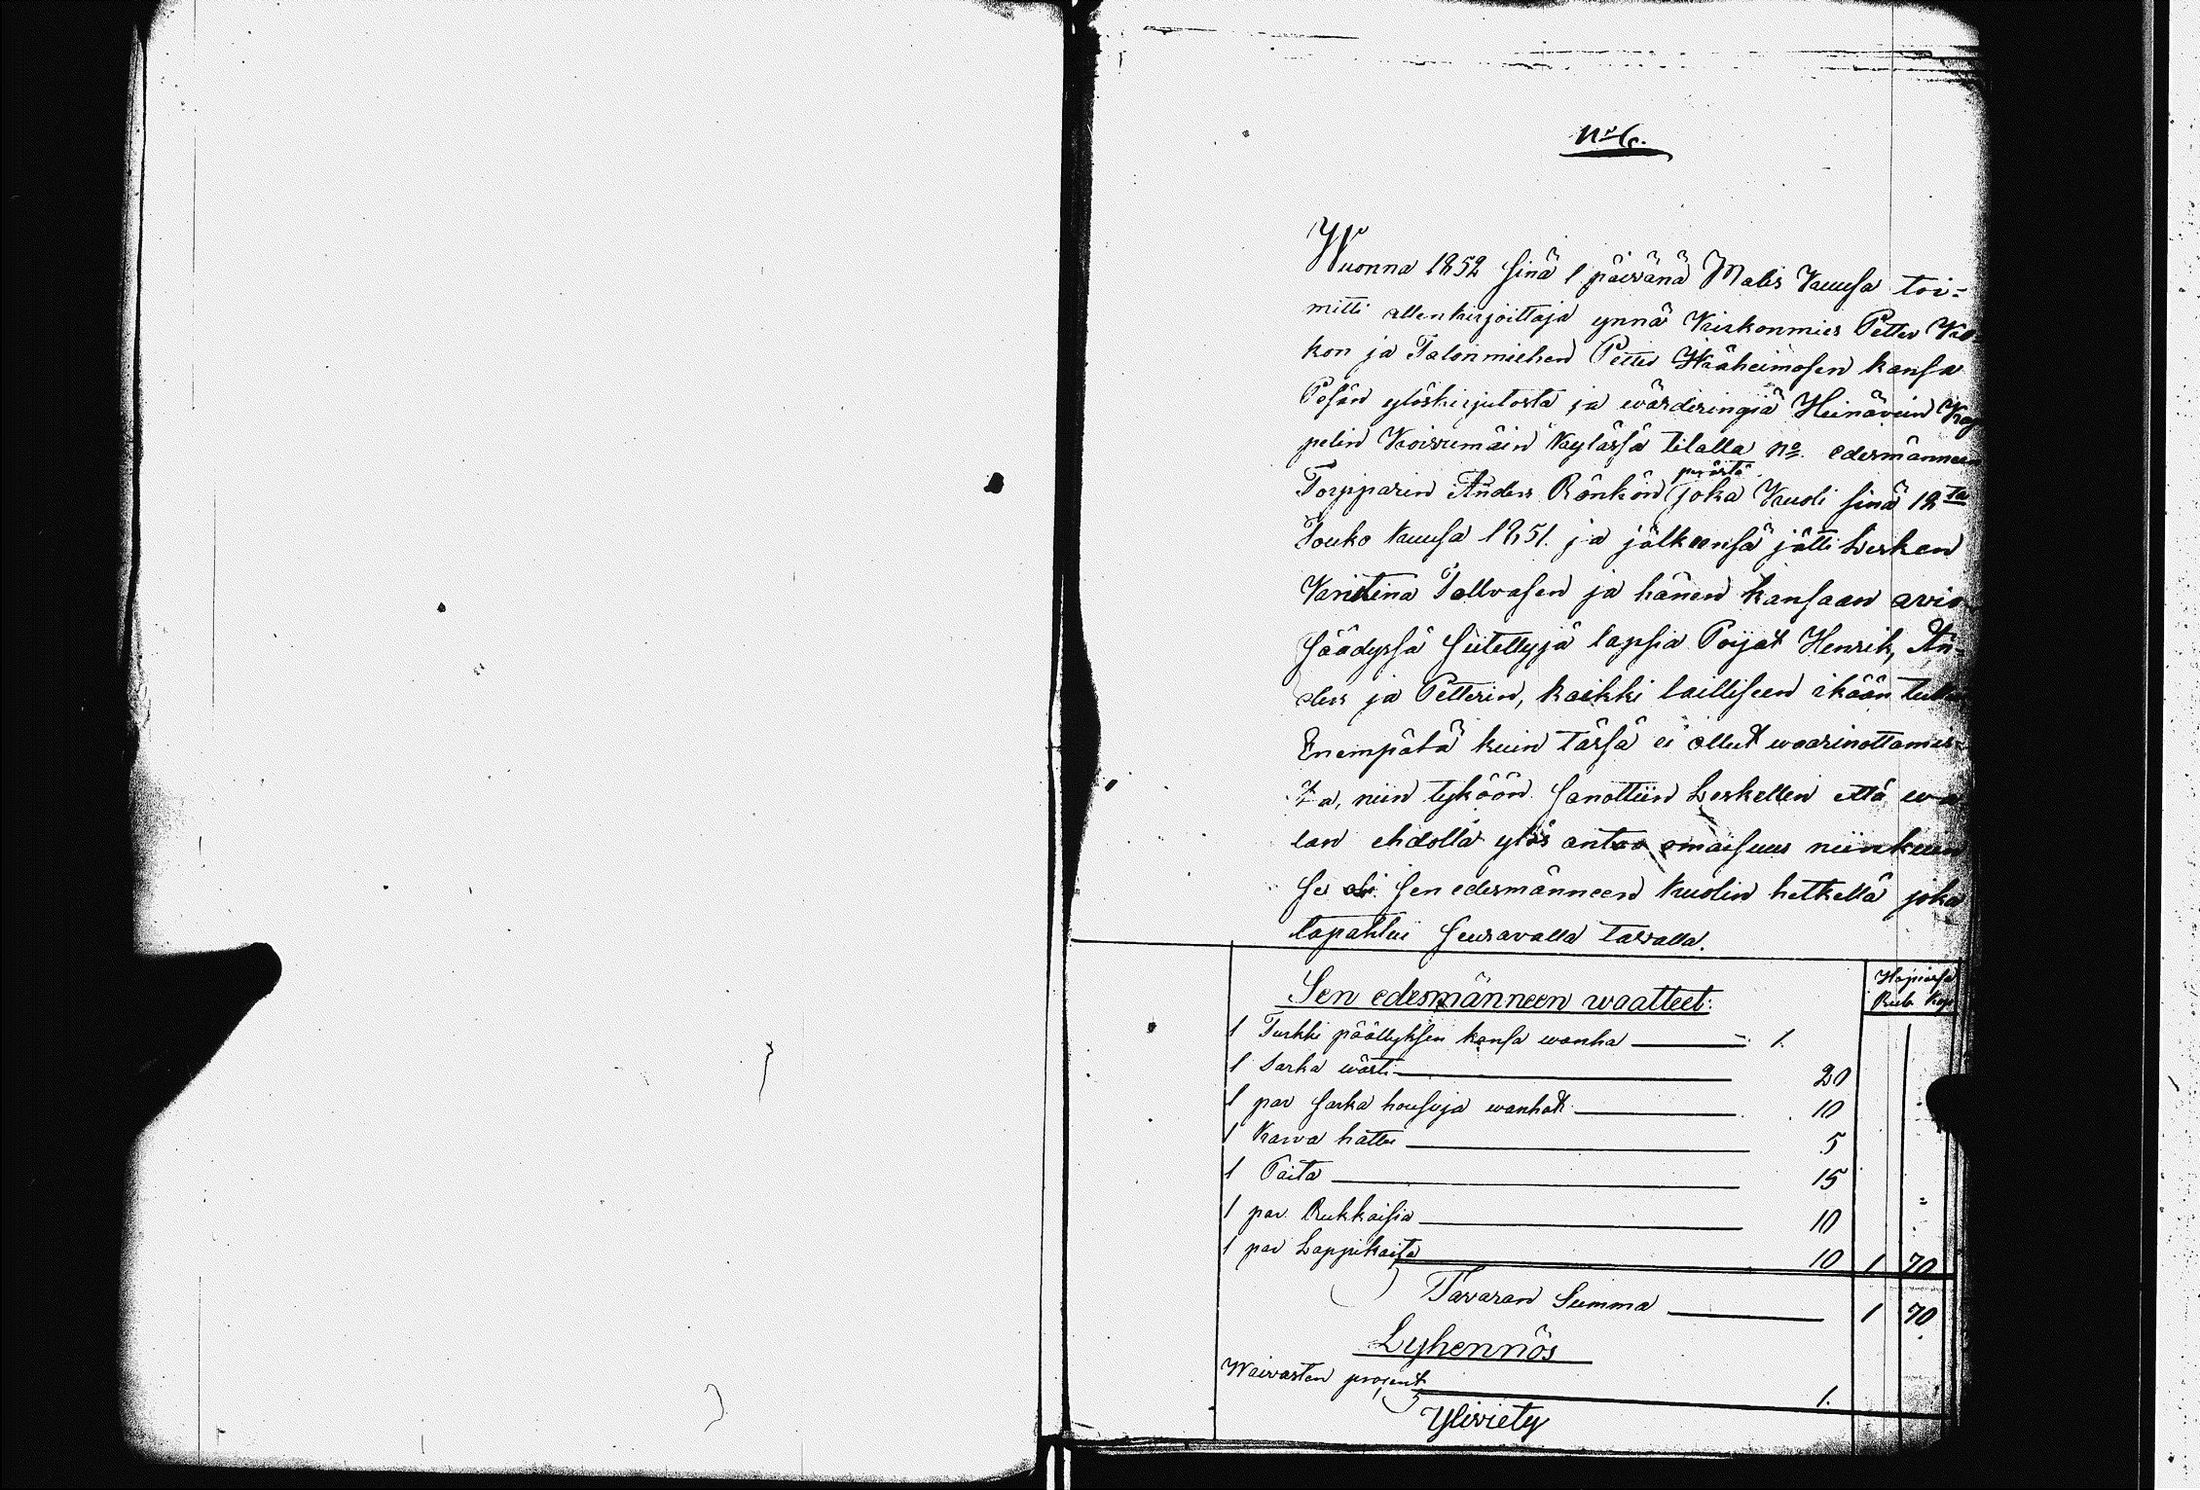 No 6.
Wuonna 1852 sinä 1 päivänä Malis Kuusa toi=
mitti allenkirjoittaja ynnä Kirkonmies Petter
kon ja Talonmiehen Petter Wäheimosen kansa
Pesän ylöskirjutosta ja wärderingiä Heinävein Kap
pelin Koivumäin kylässä tilalla No. edesmänneen
Torpparin Anders Rönkön perästä joka Kuoli sinä 12ta
Touko kuusa 1851. ja jälkeensä jätti Lesken
Kristina Tollvasen ja hänen kansaan avio
säädyssä siitettyjä lapsia Poijat Henrik, An=
ders ja Petterin, kaikki lailliseen ikään tulleet
Enempätä kuin tässä ei ollut waarinottamis=
ta, niin tyköön sanottiin Leskellen että wa
lan ehdolla ylös antaa omaisuus niinkuin
se oli sen edesmänneen kuolin hetkellä joka
tapahtui seuravalla tavalla.
Sen edesmänneen waatteet: Hopiassa
Rub. Kop.
1 Turkki päällyksen kansa wanha 1.
1 Sarka wästi 20
1 par sarka housuja wanhat 10
1 Karva hattu 5
1 Paita 15
1 par Rukkaisia 10
1 par Lappikaita 10 1 70
Tavaran Summa 1 70
Lyhennös
Waivasten prosent 1.
Yliviety